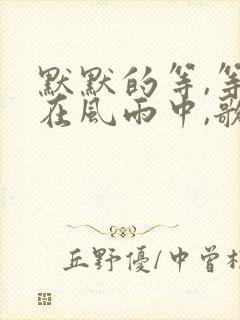 默默的等,等
在風雨中,歌
丘野優/中曾根